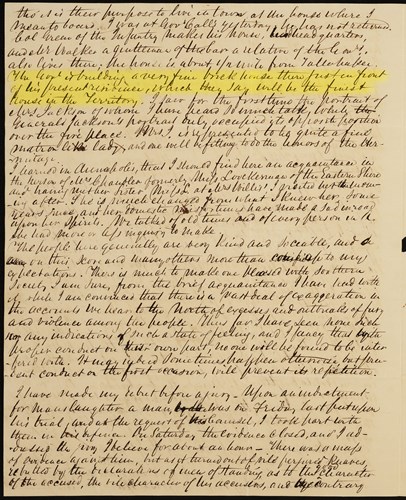 this is their purpose to live in town at the house where I
board. I was at Gov Call's yesterday who has not returned.
Col Green of the Infantry makes his house, his headquarters
and Mr Walker a gentleman of the bar a relation of the Gov's
also lives there, the house is about ½ mile from Tallahassee.
The Gov is building a very fine brick house there just in front
of his present residence, which they say will be the finest
house in the Territory. I saw for the first time the portrait of
Mrs Jackson of whom I have heard so much talk, while the
Generals Jackson's portrait only occupied its opposite position
over the fire place. Mrs J is represented to be quite a fine
matron like lady, and one well fitting to do the honors of the Her-
mitage.
I learned in Annapolis, that I should find here an acquaintance in
the person of Mrs Chandler formerly Miss Lockerman of the eastern shore
and having met at Mrs Willis'
after. She is much changed from what I knew her, some
years since, and her domestic misfortunes have made a sad inroad
upon her spirits. She talked of old times and of every person in A.
she had most inquiry to make.
The people here generally are very kind and sociable, and
on this score and many others more than come up to my
expectations. There is much to make one pleased with Southern
Society, I am sure, from the brief acquaintance I have had with
it of which I am convinced that there is a vast deal of exaggeration in
the accounts we hear to the North of excesses and outrages of fury
and violence among the people. Thus far I have seen nor heard
any indications of such a state of feeling, and I fancy that with
proper conduct on their own part, no one will be found to be inter-
fered with. It may indeed sometimes happen otherwise but pru-
dent conduct on the first occasion, will prevent its repetition.
I have made my debut before a jury. Upon an indictment
for manslaughter a man was on Friday last put upon
his trial, and at the request of his counsel, I took part with
them in his defence. On Saturday the evidence closed, and I ad-
dressed the jury I believe for about an hour. There was a mass
of evidence against him, but a set of perjured knaves
rebutted by the declarations of men of standing as to the character
of the accused, the vile character of his accusers, and the contrary